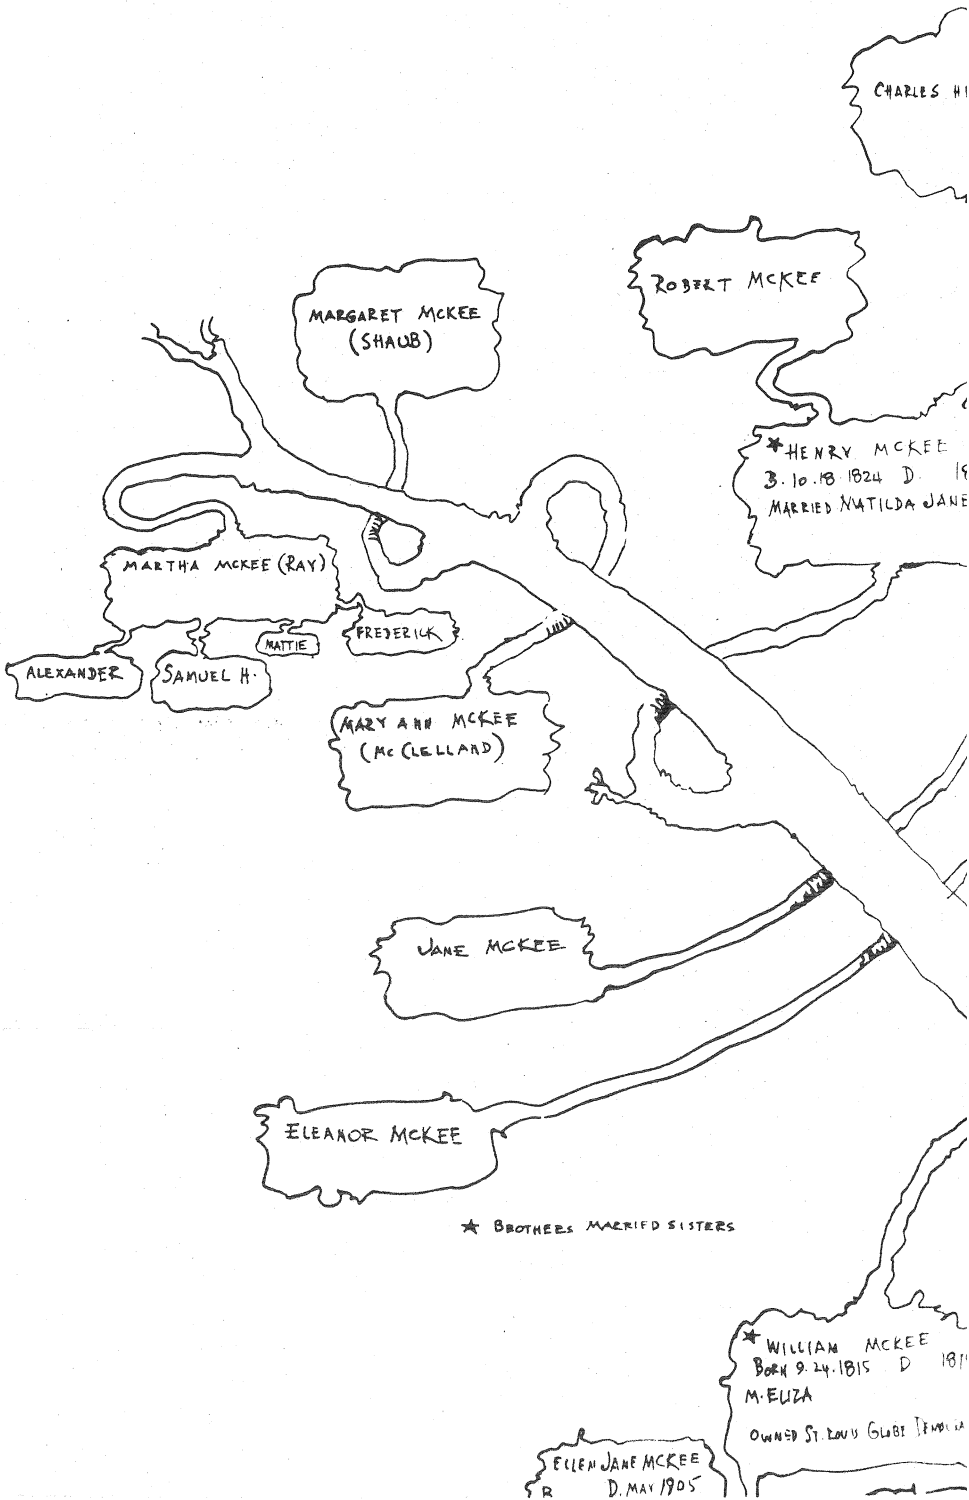 CHARLES
ROBERT MCKEE
MARGARET MCKEE
(SHAUB)
★HENRY MCKEE
B. 10.18 1824 D. 18
MARRIED MATILDA JANE
MARTHA MCKEE (RAY)
ALEXANDER
SAMUEL H.
MATTIE
FREDERICK
MARY ANN MCKEE
(MCCLELLAND)
JANE MCKEE
ELEANOR MCKEE
★ BROTHERS MARRIED SISTERS
★ WILLIAM MCKEE
BORN 9.24.1815 D 18
M. ELIZA
OWNED ST. LOUIS GLOBE
ELLEN JANE MCKEE
B D. MAY 1905